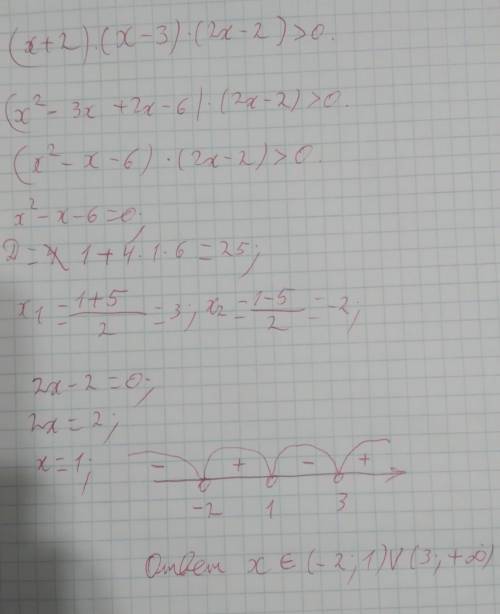 (x+2)·(x-3)·(2x-2)>0.
(x²-3x+2x-6)·(2x-2)>0.
(x²-x-6)·(2x-2)>0.
x²-x-6=0;
D= 1+4·1·6=25;
x₁=(1+5)/2=3; x₂=(1-5)/2=-2;
2x-2=0;
2x=2;
x=1;
- + - +
-2 1 3
Ответ x∈(-2;1)V(3;+∞)